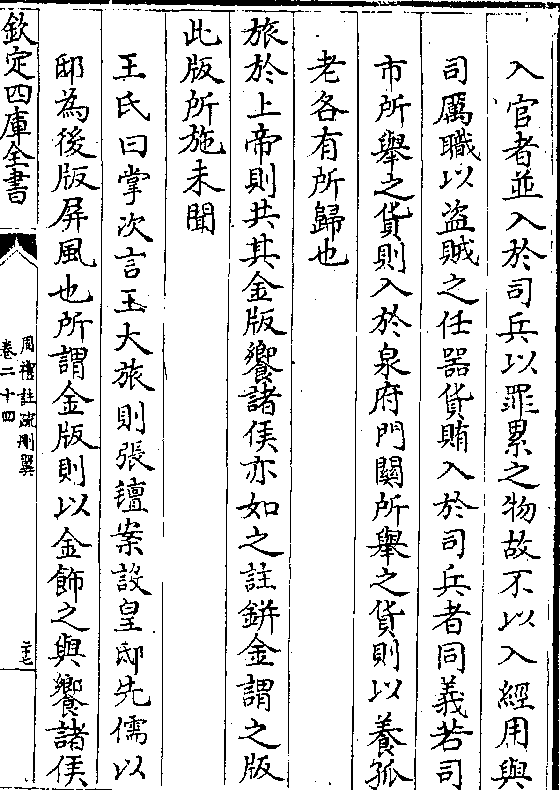 入官者並入於司兵以罪累之物故不以入經用與
司厲職以盜賊之任器貨賄入於司兵者同義若司
市所舉之貨則入於泉府門關所舉之貨則以養孤
老各有所歸也
旅於上帝則共其金版饗諸侯亦如之註鉼金謂之版
此版所施未聞
王氏曰掌次言王大旅則張氊案設皇邸先儒以
邸為後版屏風也所謂金版則以金飾之與饗諸侯
欽定四庫全書
周禮註疏刪翼
卷二十四
二十七